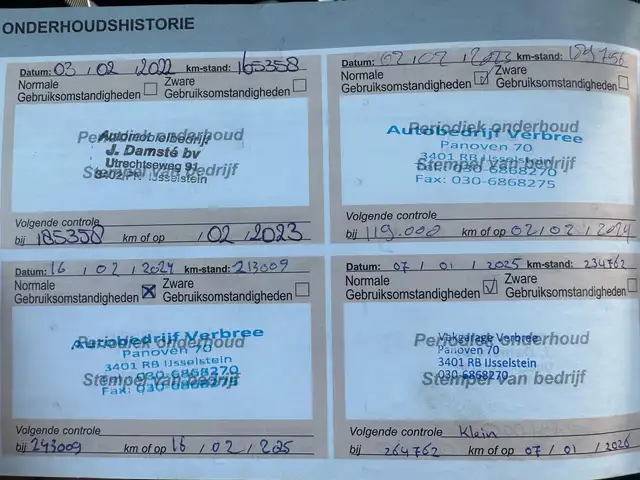 ONDERHOUDSHISTORIE
Datum: 03 / 02 / 2022 km-stand: 165358
Normale Gebruiksomstandigheden
Zware Gebruiksomstandigheden
Periodiek onderhoud
Stempel van bedrijf
Automobielbedrijf
J. Damsté bv
Utrechtseweg 91
3402 PR IJsselstein
Volgende controle
bij 185358 km of op / 02 / 2023
Datum: 02 / 02 / 2023 km-stand:
Normale Gebruiksomstandigheden
Zware Gebruiksomstandigheden
Periodiek onderhoud
Stempel van bedrijf
Autobedrijf Verbree
Panoven 70
3401 RB IJsselstein
Tel.: 030-6868270
Fax: 030-6868275
Volgende controle
bij 119.000 km of op 02 / 02 / 2024
Datum: 16 / 02 / 2024 km-stand: 213009
Normale Gebruiksomstandigheden
Zware Gebruiksomstandigheden
Periodiek onderhoud
Stempel van bedrijf
Autobedrijf Verbree
Panoven 70
3401 RB IJsselstein
030-6868270
Fax: 030-6868275
Volgende controle
bij 243009 km of op 16 / 02 / 2025
Datum: 07 / 01 / 2025 km-stand: 234762
Normale Gebruiksomstandigheden
Zware Gebruiksomstandigheden
Periodiek onderhoud
Stempel van bedrijf
Vakgarage Verbree
Panoven 70
3401 RB IJsselstein
030-6868270
Volgende controle Klein
bij 264762 km of op 07 / 01 / 2026